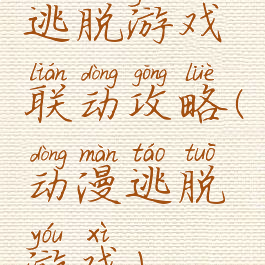 逃脱游戏
lián dòng gōng lüè
联动攻略(
dòng màn táo tuō
动漫逃脱
yóu xì
游戏)